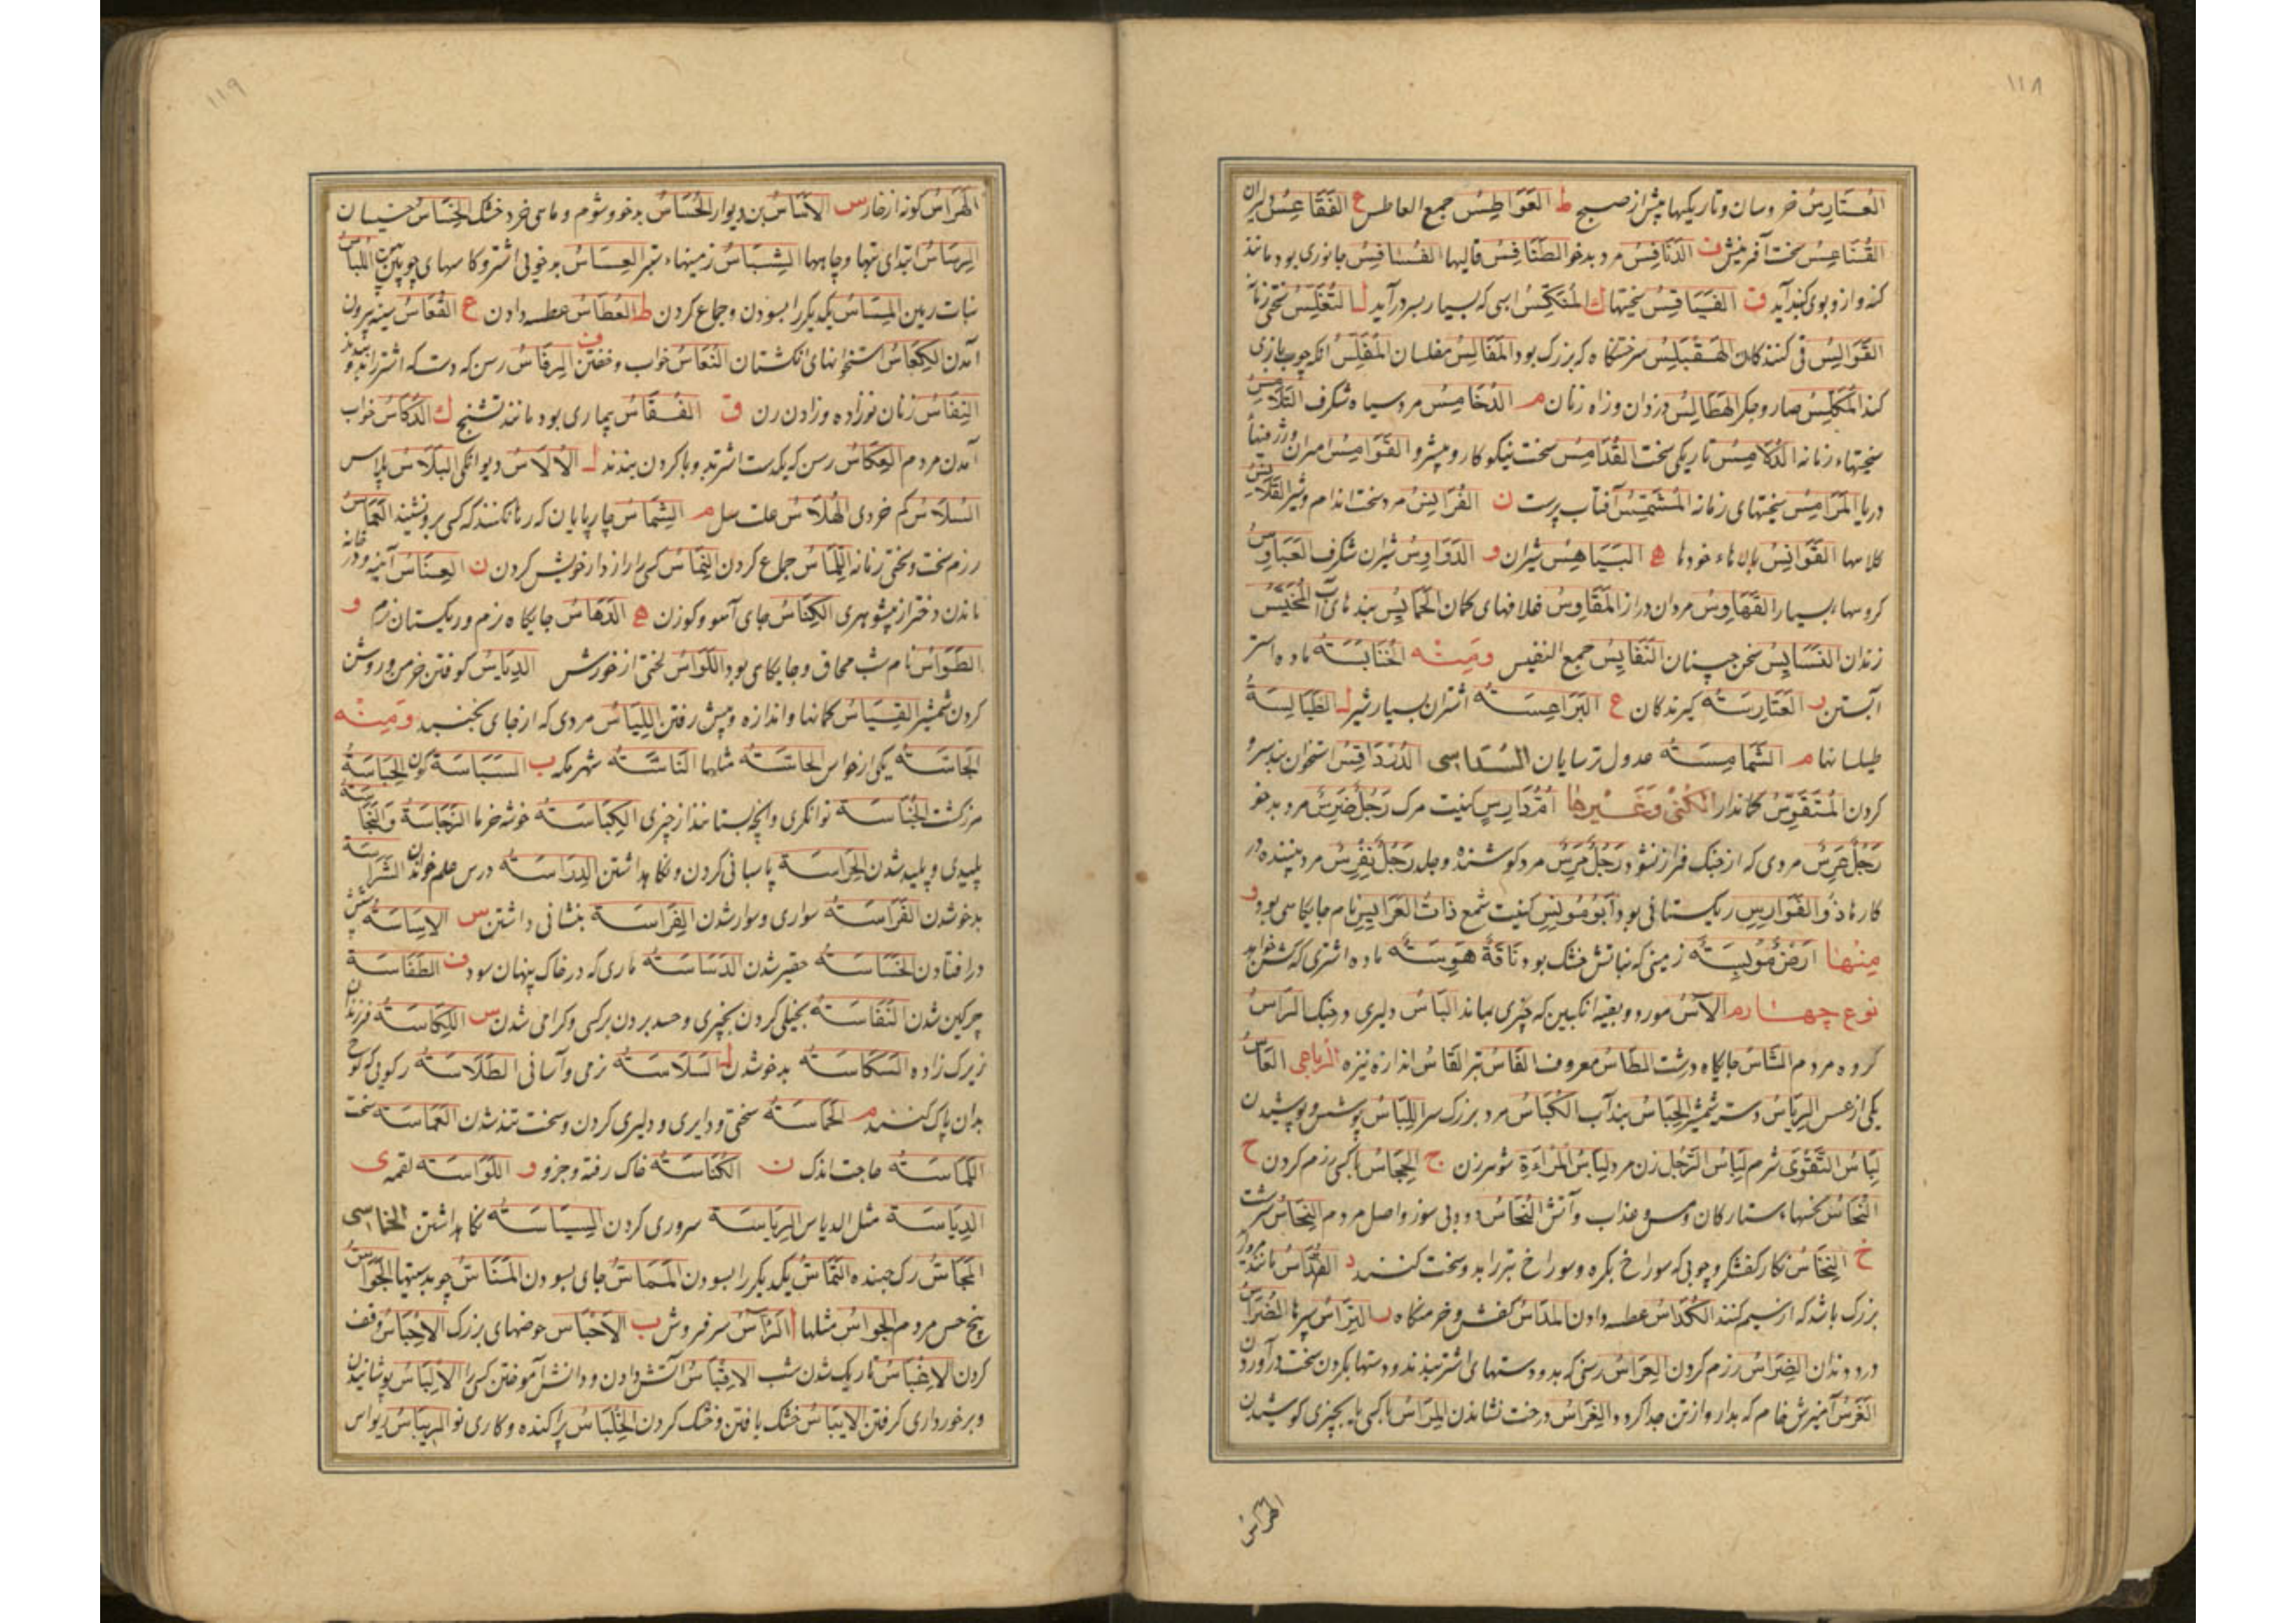 ١١٨
العَتَارِسُ خروسان و تاریکیها پیش از صبح ط العَوَاطِسُ جمع العاطس ع الفَقَاعِسُ
القُنَاعِسُ سخت آفرینش ف الدَنَافِسُ مرد بدخو الطَنَافِسُ قالیها الفَسَافِسُ جانوری بود مانند
کنه و از و بوی کند آید ق الفَیَاقِسُ سختیها ك المُتَکَّسُ اسبی که بسیار بسر درآید ل التَغَلِیسُ سختی زمانه
القَوَالِیسُ قی کنندکان الهَقَبْلِیسُ سر ختنکاه که بزرک بود المَفَالِیسُ مفلسان المُفَلِّسُ انکه چوب بازی
کند المُکَلِّسُ صاروجکر الهَطَالِیسُ دزدان وزاه زنان م الدُخَامِسُ مرد سیاه شکرف
سختیهاء زمانه الدُلَامِسُ تاریکی سخت القُدَامِسُ سخت نیکوکار و پیشرو القَوَامِسُ میران
دریا المَرَامِیسُ سختیهای زمانه المُشَمِّسُ آفتاب پرست ن الفُرَانِسُ مرد سخت اندام و شیر القَلَانِسُ
کلاهها القَوَانِسُ بالاهاء خودها ه البَیَاهِسُ شیران و الدَوَاوِسُ شیران شکرف
کروسهاء بسیار القَهَاوِسُ مردان دراز المَقَاوِسُ غلافهای کمان الحَمَایِسُ بندهای آب المُخَیَّسُ
زندان النَسَایِسُ سخن چینان النَفَایِسُ جمع النفیس وَمِنْهُ الخُنَابَسَةُ ماده استر
آبستن ر العَتَارِسَةُ کیرندکان ع البَرَاعِسَةُ اشتران بسیار شیر ل الطَیَالِسَةُ
طیلسانها م الشَمَامِسَةُ عدول ترسایان السُدَاسِی الدُرْدَاقِسُ استخوان بند سر و
کردن المُتَقَوِّسُ کماندار الکُنَی وَغَیْرِهَا اُمُّ دَارِسٍ کنیت مرک رَجُلٌ ضَرِسٌ مرد بدخو
رَجُلٌ عَرِسٌ مردی که از جنک فراز نشود رَجُلٌ مَرِسٌ مرد کوشنده و جلد رَجُلٌ نَفْرِسٌ مرد بیننده در
کارها ذُو الفَوَارِسِ ریکستانی بود اَبُو مُونِسٍ کنیت شمع ذَاتُ العَرَایِسِ نام جایکاهی بود و
مِنْهَا اَرْضٌ مُوبِسَةٌ زمینی که نباتش خشک بود نَاقَةٌ هَوِسَةٌ ماده اشتری که کشن خواهد
نوع چهارم الآسُ مورد و بقیه انکبین که چیزی بماند البَاسُ دلیری و جنک الرَاسُ
کروه مردم الشَاسُ جایکاه درشت الطَاسُ معروف الفَاسُ تبر القَاسُ اندازه نیزه الرُبَاعِی العَاسُ
یکی از عسس الرِیَاسُ دسته شمشیر الحِبَاسُ بند آب الکُبَاسُ مرد بزرک سر اللِبَاسُ پوشش و پوشیدن
لِبَاسُ التَقْوَی شرم لِبَاسُ الرَجُلِ زن مرد لِبَاسُ المَرْاَةِ شوهر زن ج الجِحَاسُ باکسی رزم کردن ح
النُحَاسُ نحسهاء ستارکان و مس و عذاب و آتش النُحَاسُ دود بی سوز و اصل مردم النِحَاسُ سرشت
خ النِخَاسُ نکار کفشکر و چوبی که سوراخ بکره و سوراخ تبر را بدو سخت کنند د القُدَاسُ مانند مروارید
بزرک باشد که از سیم کنند الکُدَاسُ عطسه دادن المَدَاسُ کفش و خرمنکاه ر التِرَاسُ سپرها الضُرَاسُ
درد دندان الضِرَاسُ رزم کردن العِرَاسُ رسنی که بدو دستهای اشتر ببندند و دستها بکردن سخت درآوردن
الغَرَسُ آمیزش خام که بدار و از تن جدا کرود الغِرَاسُ درخت نشاندن المِرَاسُ با کسی یا بچیزی کوشیدن
الهَرَاسُ
١١٩
الهَرَاسُ کونه از خار س الاَسَاسُ بن دیوار الحُسَاسُ بدخو و شوم و ماهی خرد خشک الخِسَاسُ خسیسان
الرِسَاسُ ابتدای تبها و چاهها الشِسَاسُ زمینهاء ستبر العِسَاسُ بدخویی اشتر و کاسهای چوبین اللِسَاسُ
نبات زمین المِسَاسُ یکدیکر را بسودن و جماع کردن ط العُطَاسُ عطسه دادن ع القُعَاسُ سینه بیرون
آمدن الکِعَاسُ استخوانهای انکشتان النُعَاسُ خواب و خفتن ف الرِفَاسُ رسن که دست اشتر را بدو ببندند
النِفَاسُ زنان نوزاده و زادن زن ق الفُقَاسُ بیماری بود مانند تشنج ك الدُکَاسُ خواب
آمدن مردم العِکَاسُ رسن که یکدست اشتر بدو با کردن بندند ل الاُلَاسُ دیوانکی البَلَاسُ پلاس
السُلَاسُ کم خردی الهُلَاسُ علت سل م الشِمَاسُ چارپایان که رها نکنند که کسی برو نشیند العَمَاسُ
رزم سخت و سختی زمانه اللِمَاسُ جماع کردن النِمَاسُ کسی را راز دار خویش کردن ن العِنَاسُ آینه و در خانه
ماندن دختر از بیشوهری الکِنَاسُ جای آهو و کوزن ه الدَهَاسُ جایکاه نرم و ریکستان نرم و
الطَوَاسُ نام شب محاق و جایکاهی بود اللَوَاسُ لختی از خورش الدِیَاسُ کوفتن خرمن و روشن
کردن شمشیر القِیَاسُ کمانها و اندازه و پیش رفتن اللِیَاسُ مردی که از جای نجنبد وَمِنْهُ
الحَاسَةُ یکی از حواس الحَاسَةُ مثلها النَاسَّةُ شهر مکه ب السَبَاسَةُ کون الحِبَاسَةُ
مرز کشت الخُبَاسَةُ توانکری و انچه بستانند از چیزی الکِبَاسَةُ خوشه خرما الرَجَاسَةُ وَالنَجَاسَةُ
پلیدی و پلید شدن الحِرَاسَةُ پاسبانی کردن و نکاهداشتن الدِرَاسَةُ درس علم خواندن الشَرَاسَةُ
بدخو شدن الفَرَاسَةُ سواری و سوار شدن الفِرَاسَةُ بنشانی داشتن س الاِسَاسَةُ
درافتادن الخَسَاسَةُ حقیر شدن الدَسَاسَةُ ماری که در خاک پنهان شود ف الطَفَاسَةُ
چرکین شدن النَفَاسَةُ بخیلی کردن بچیزی و حسد بردن برکسی و کرامی شدن س اللِکَاسَةُ فرزندان
زیرک زاده الشَکَاسَةُ بدخو شدن ل السَلَاسَةُ نرمی و آسانی الطَلَاسَةُ رکویی که لوح
بدان پاک کنند م الحَمَاسَةُ سختی و دلیری و دلیری کردن و سخت تند شدن العَمَاسَةُ سخت
اللُمَاسَةُ حاجت اندک ن الکُنَاسَةُ خاک رفته و جزو و اللُوَاسَةُ لقمه ی
الدِیَاسَةُ مثل الدیاس الرِیَاسَةُ سروری کردن السِیَاسَةُ نکاهداشتن الخُمَاسِی
المَجَاسُّ رک جهنده التَمَاسُّ یکدیکر را بسودن المَمَاسُّ جای بسودن المَنَاسُّ چوبدستیها الجَوَاسُّ
پنج حس مردم الحَوَاسُّ مثلها ا الرَآسُ سرفروش ب الاَحْبَاسُ حوضهای بزرک الاِحْبَاسُ وقف
کردن الاِغْبَاسُ تاریک شدن شب الاِقْبَاسُ آتش دادن و دانش آموختن کسی را الاِلْبَاسُ پوشانیدن
و برخورداری کرفتن الایبَاسُ خشک یافتن و خشک کردن الخِلْبَاسُ پراکنده و کاری نو الرِیبَاسُ ریواس